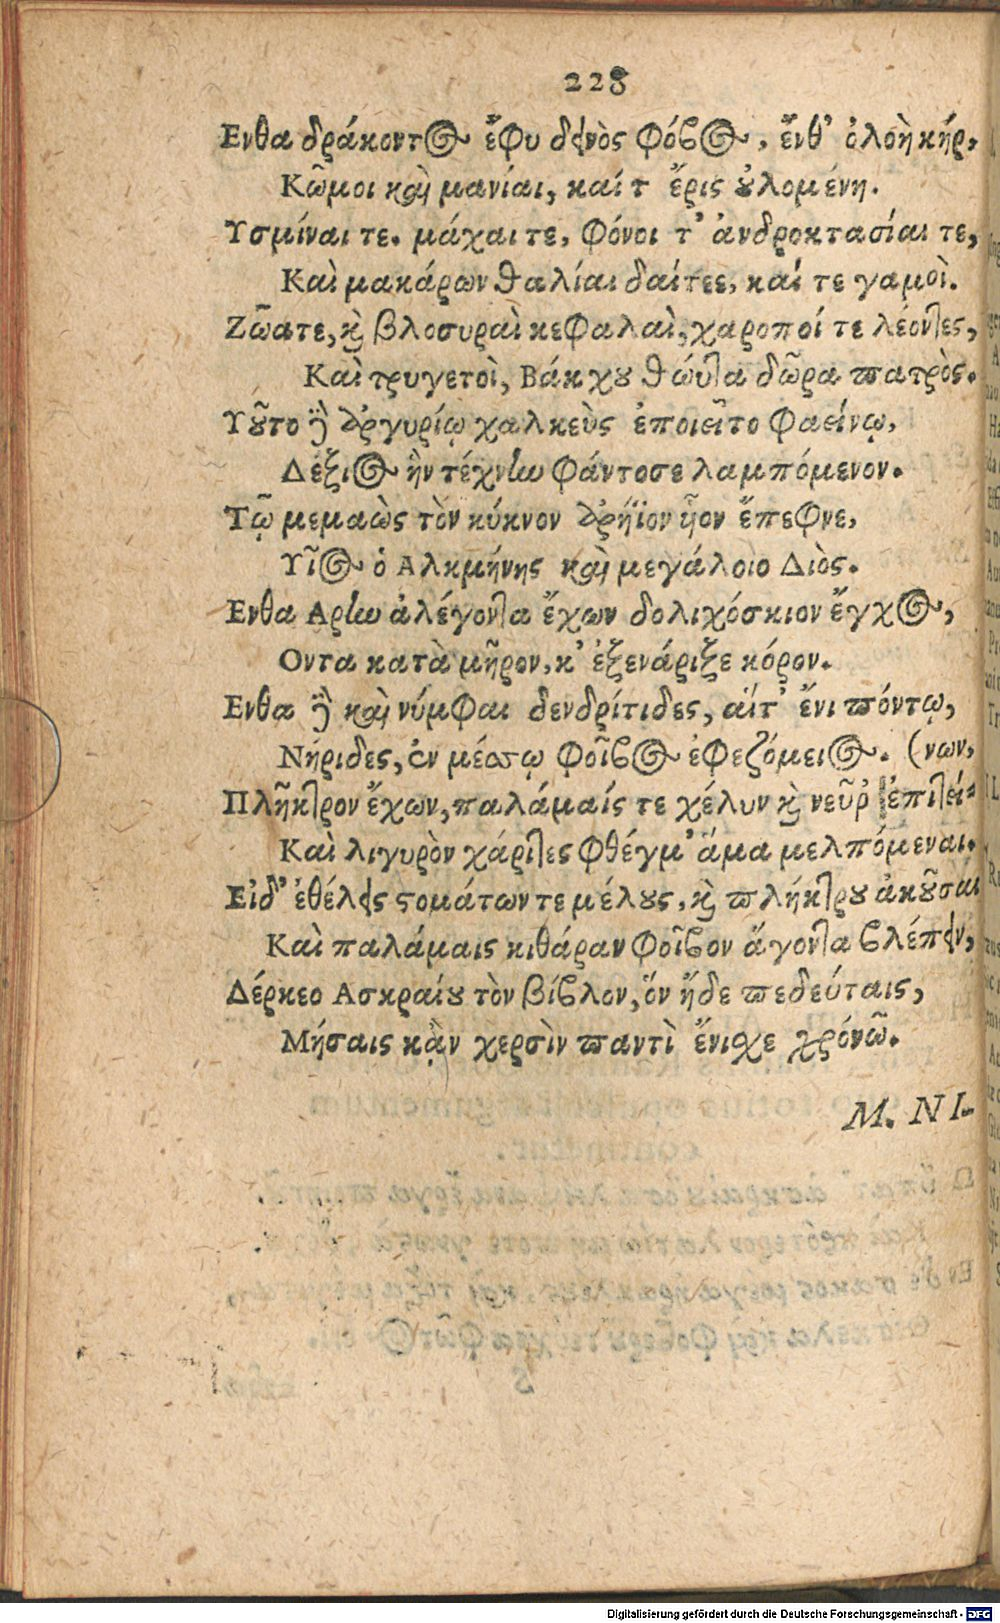 228
Ενθα δράκοντος ἔφυ δεινὸς φόβος, ἔνθ' ὀλοὴ κήρ,
Κῶμοι καὶ μανίαι, καί τ ἔρις ȣλομένη.
Υσμίναι τε. μάχαι τε, φόνοι τ' ἀνδροκτασίαι τε,
Καὶ μακάρων θαλίαι δαίτεε, καί τε γαμοὶ.
Ζῶατε, κὶ βλοσυραὶ κεφαλαὶ, χαροποί τε λέοντες,
Καὶ τρυγετοὶ, Βάκχȣ θώυτα δῶρα πατρὸς.
Υȣ͂το δὲ ἀργυρίῳ χαλκεὺς ἐποιεῖτο φαείνῳ,
Δέξιος ἣν τέχνην φάντοσε λαμπόμενον.
Τῷ μεμαὼς τὸν κύκνον ἀρήϊον ἧον ἔπεφνε,
Υἷος ὁ Αλκμήνης καὶ μεγάλοιο Διὸς.
Ενθα Αρην ἀλέγοντα ἔχων δολιχόσκιον ἔγχος,
Οντα κατὰ μῆρον, κ' ἐξενάριξε κόρον.
Ενθα δὲ καὶ νύμφαι δενδρίτιδες, αἵτ' ἔνι πόντῳ,
Νήριδες, ἐν μέσσῳ φοῖβος ἐφεζόμειος. (νων,
Πλῆκτρον ἔχων, παλάμαίς τε χέλυν κὶ νεῦρ' ἐπιτεί-
Καὶ λιγυρὸν χάριτες φθέγμ' ἅμα μελπόμεναι.
Εἰδ' ἐθέλεις στομάτων τε μέλȣς, κὶ πλήκτρȣ ἀκȣ͂σαι
Καὶ παλάμαις κιθάραν φοῖβον ἄγοντα βλέπειν,
Δέρκεο Ασκραίȣ τὸν βίβλον, ὅν ἤδε πεδεύταις,
Μήσαις κᾂν χερσὶν παντὶ ἔνισχε χρόνῶ.
M. NI-
Digitalisierung gefördert durch die Deutsche Forschungsgemeinschaft - DFG